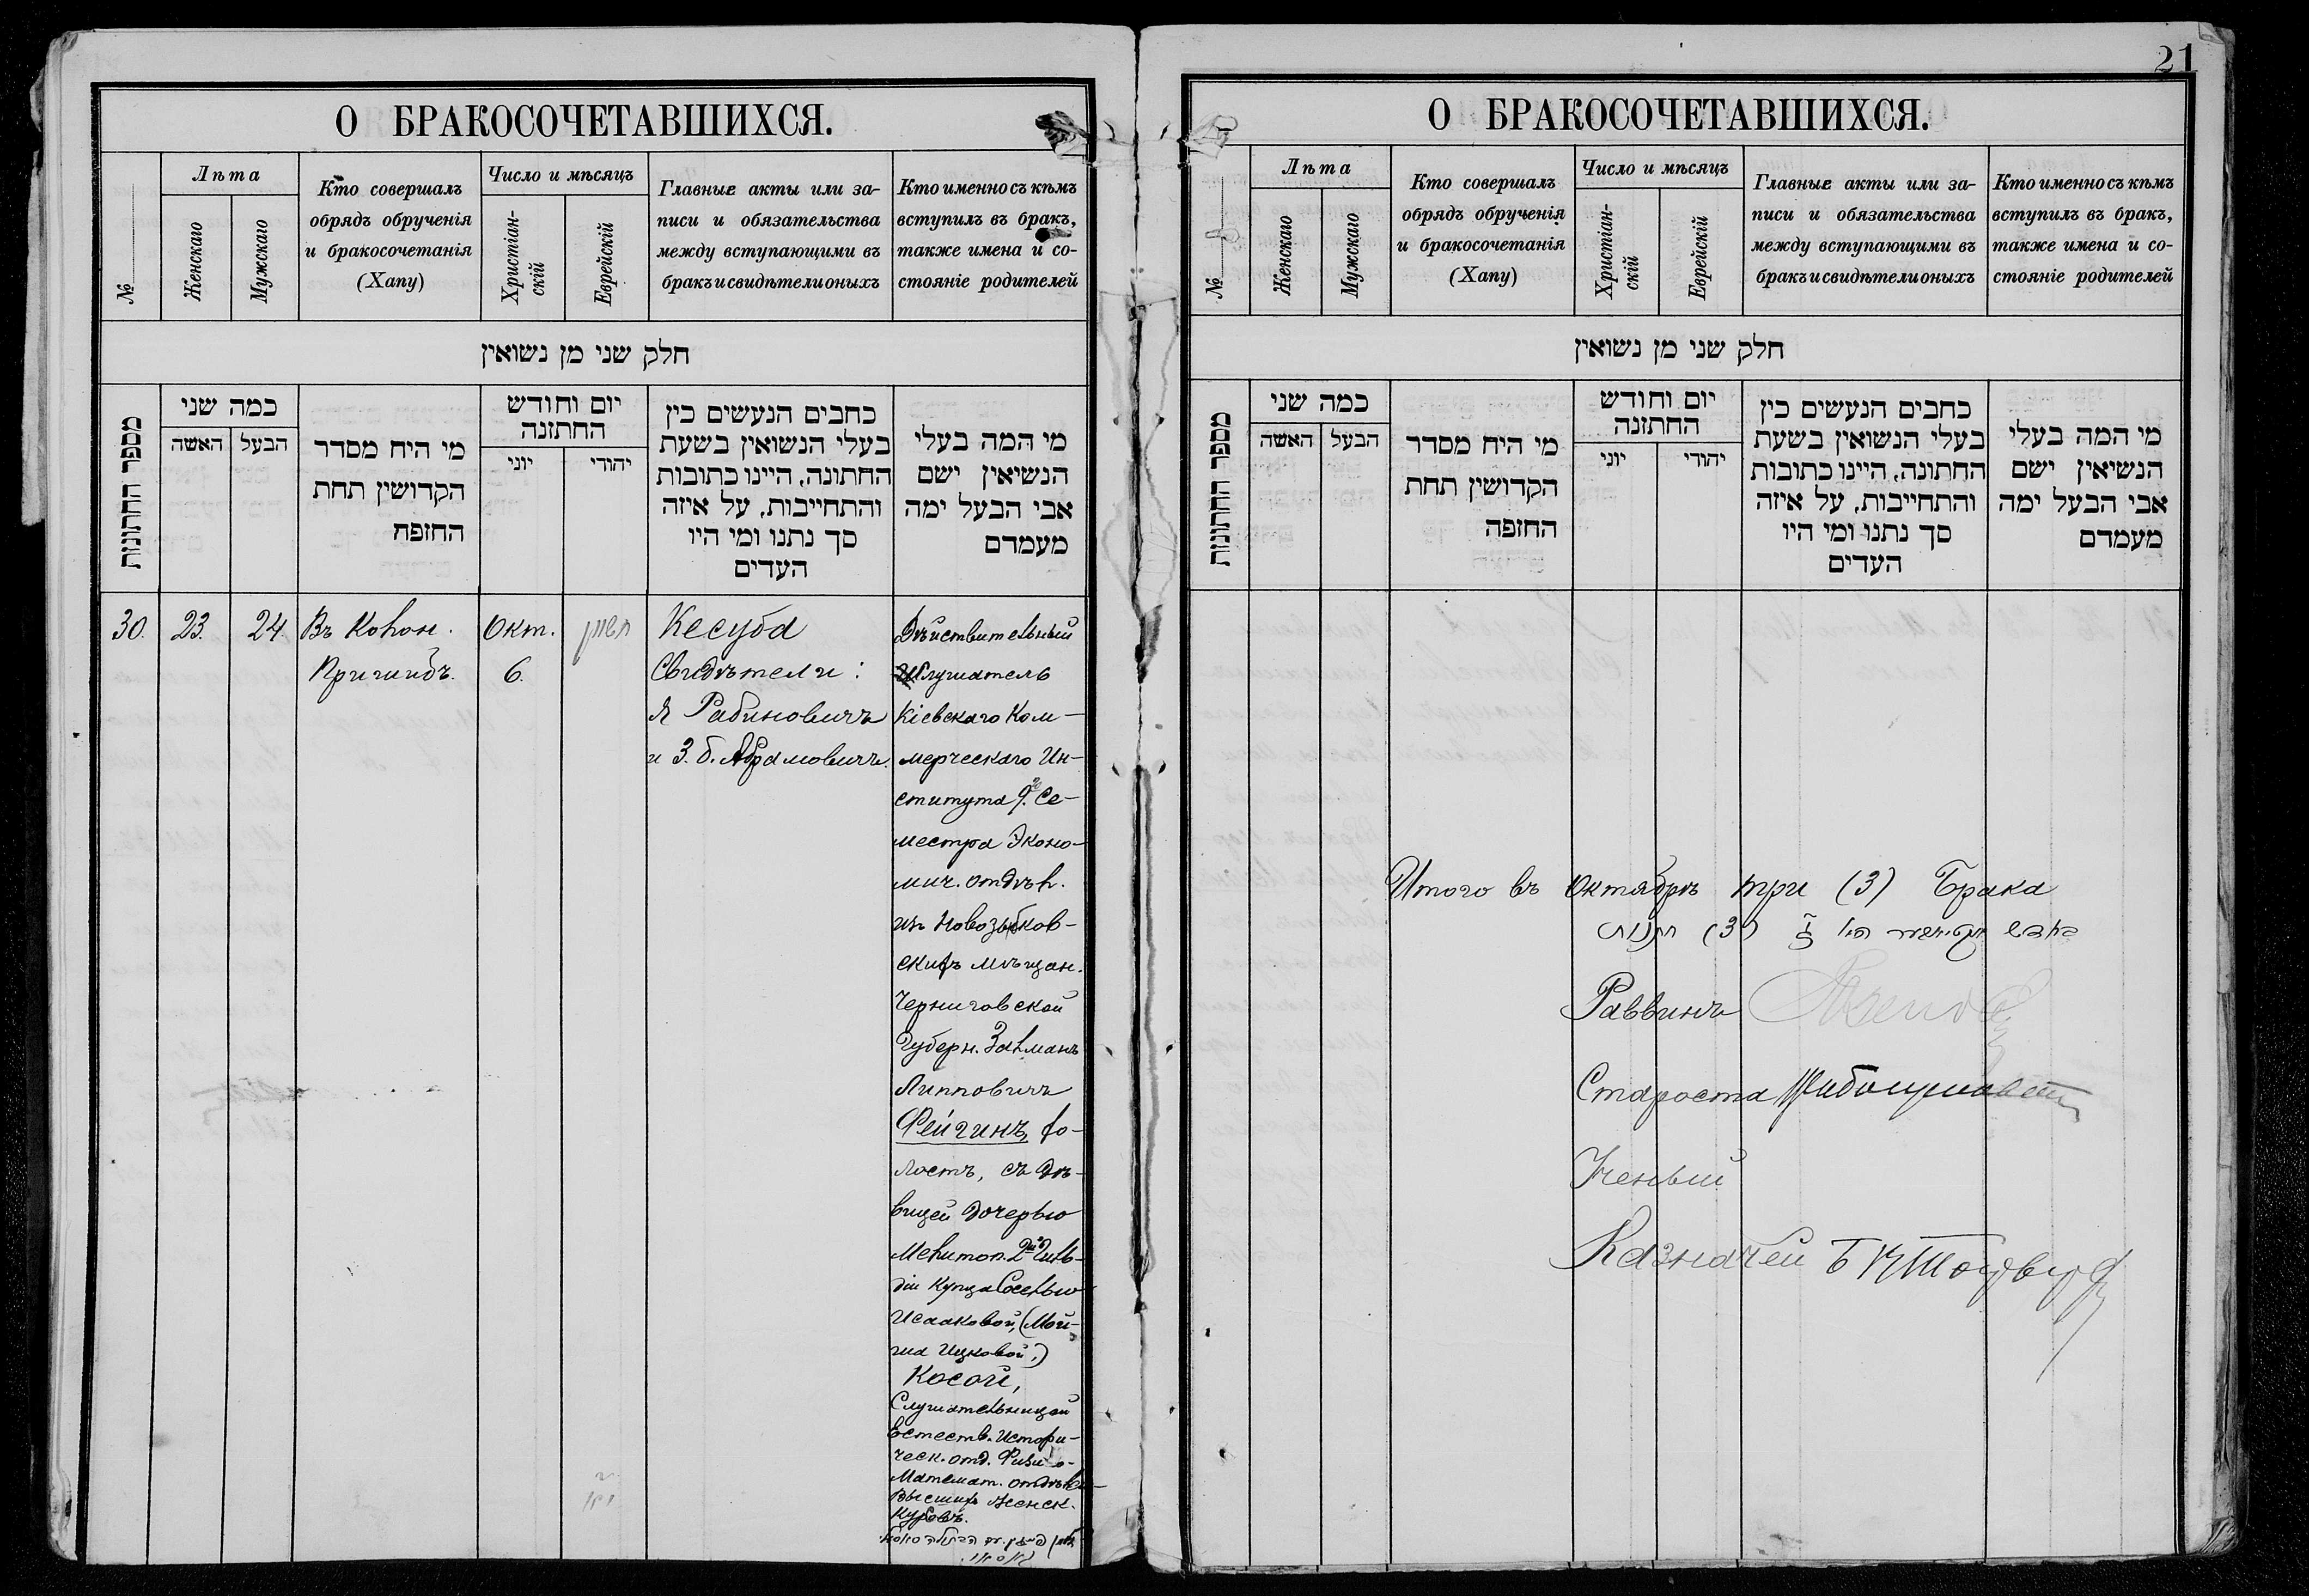 О БРАКОСОЧЕТАВШИХСЯ.
№
Лѣта
Женскаго
Мужскаго
Кто совершалъ
обрядъ обрученія
и бракосочетанія
(Хапу)
Число и мѣсяцъ
Христіан-
скій
Еврейскій
Главные акты или за-
писи и обязательства
между вступающими въ
бракъ и свидѣтели оныхъ
Кто именно съ кѣмъ
вступилъ въ бракъ,
также имена и со-
стояніе родителей
חלק שני מן נשואין
מספר החתונות
כמה שני
האשה
הבעל
מי היח מסדר
הקדושין תחת
החופה
יום וחודש
החתונה
יוני
יהודי
כחבים הנעשים כין
בעלי הנשואין בשעת
החתונה, היינו כתובות
והתחייבות, על איזה
סך נתנו ומי היו
העדים
מי המה בעלי
הנשיאין ישם
אבי הבעל ימה
מעמדם
30.
23.
24.
Въ Колон.
Пришибъ.
Окт.
6.
חשון
Кесуба
Свидѣтели:
Я Рабиновичъ
и З. б. Абрамовичъ.
Дѣйствительный
Слушатель
Кіевскаго Ком-
мерческаго Ин-
ститута 9. Се-
местра Эконо-
мич. отдѣл.
изъ Новозыбков-
скихъ мѣщан.
Черниговской
Губерн. Залманъ
Липповичъ
Фейгинъ, хо-
лостъ, съ дѣ-
вицей дочерью
Мелитоп. 2ой Гиль-
діи Купца Соселью
Исааковой, (Мой-
Ицковой,)
Косой,
Слушательницей
Естеств. Истори-
ческ. отд. Физико-
Математ. отдѣле-
Высших Женск.
Курсовъ.
21
О БРАКОСОЧЕТАВШИХСЯ.
№
Лѣта
Женскаго
Мужскаго
Кто совершалъ
обрядъ обрученія
и бракосочетанія
(Хапу)
Число и мѣсяцъ
Христіан-
скій
Еврейскій
Главные акты или за-
писи и обязательства
между вступающими въ
бракъ и свидѣтели оныхъ
Кто именно съ кѣмъ
вступилъ въ бракъ,
также имена и со-
стояніе родителей
חלק שני מן נשואין
מספר החתונות
כמה שני
האשה
הבעל
מי היח מסדר
הקדושין תחת
החופה
יום וחודש
החתונה
יוני
יהודי
כחבים הנעשים כין
בעלי הנשואין בשעת
החתונה, היינו כתובות
והתחייבות, על איזה
סך נתנו ומי היו
העדים
מי המה בעלי
הנשיאין ישם
אבי הבעל ימה
מעמדם
Итого въ Октябрѣ три (3) Брака
היו ג (3) חתנות
Раввинъ
Староста
Ученый
Казначей